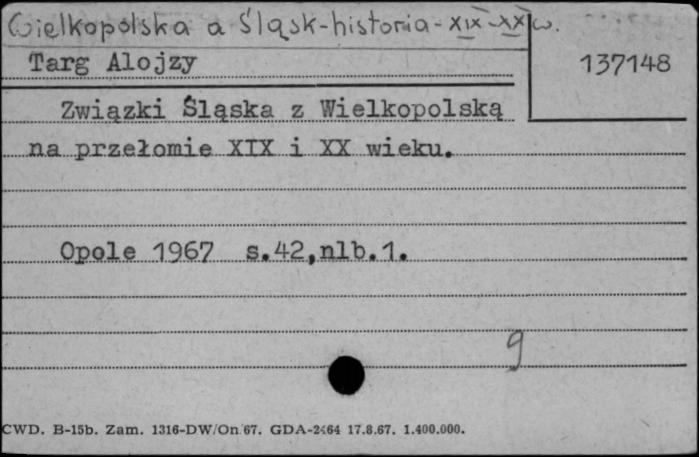 Wielkopolska a Śląsk-historia-XIX-XX w.
Targ Alojzy
137148
Związki Śląska z Wielkopolską
na przełomie XIX i XX wieku.
Opole 1967 s.42,nlb.1.
9
CWD. B-15b. Zam. 1316-DW/On 67. GDA-2464 17.8.67. 1.400.000.